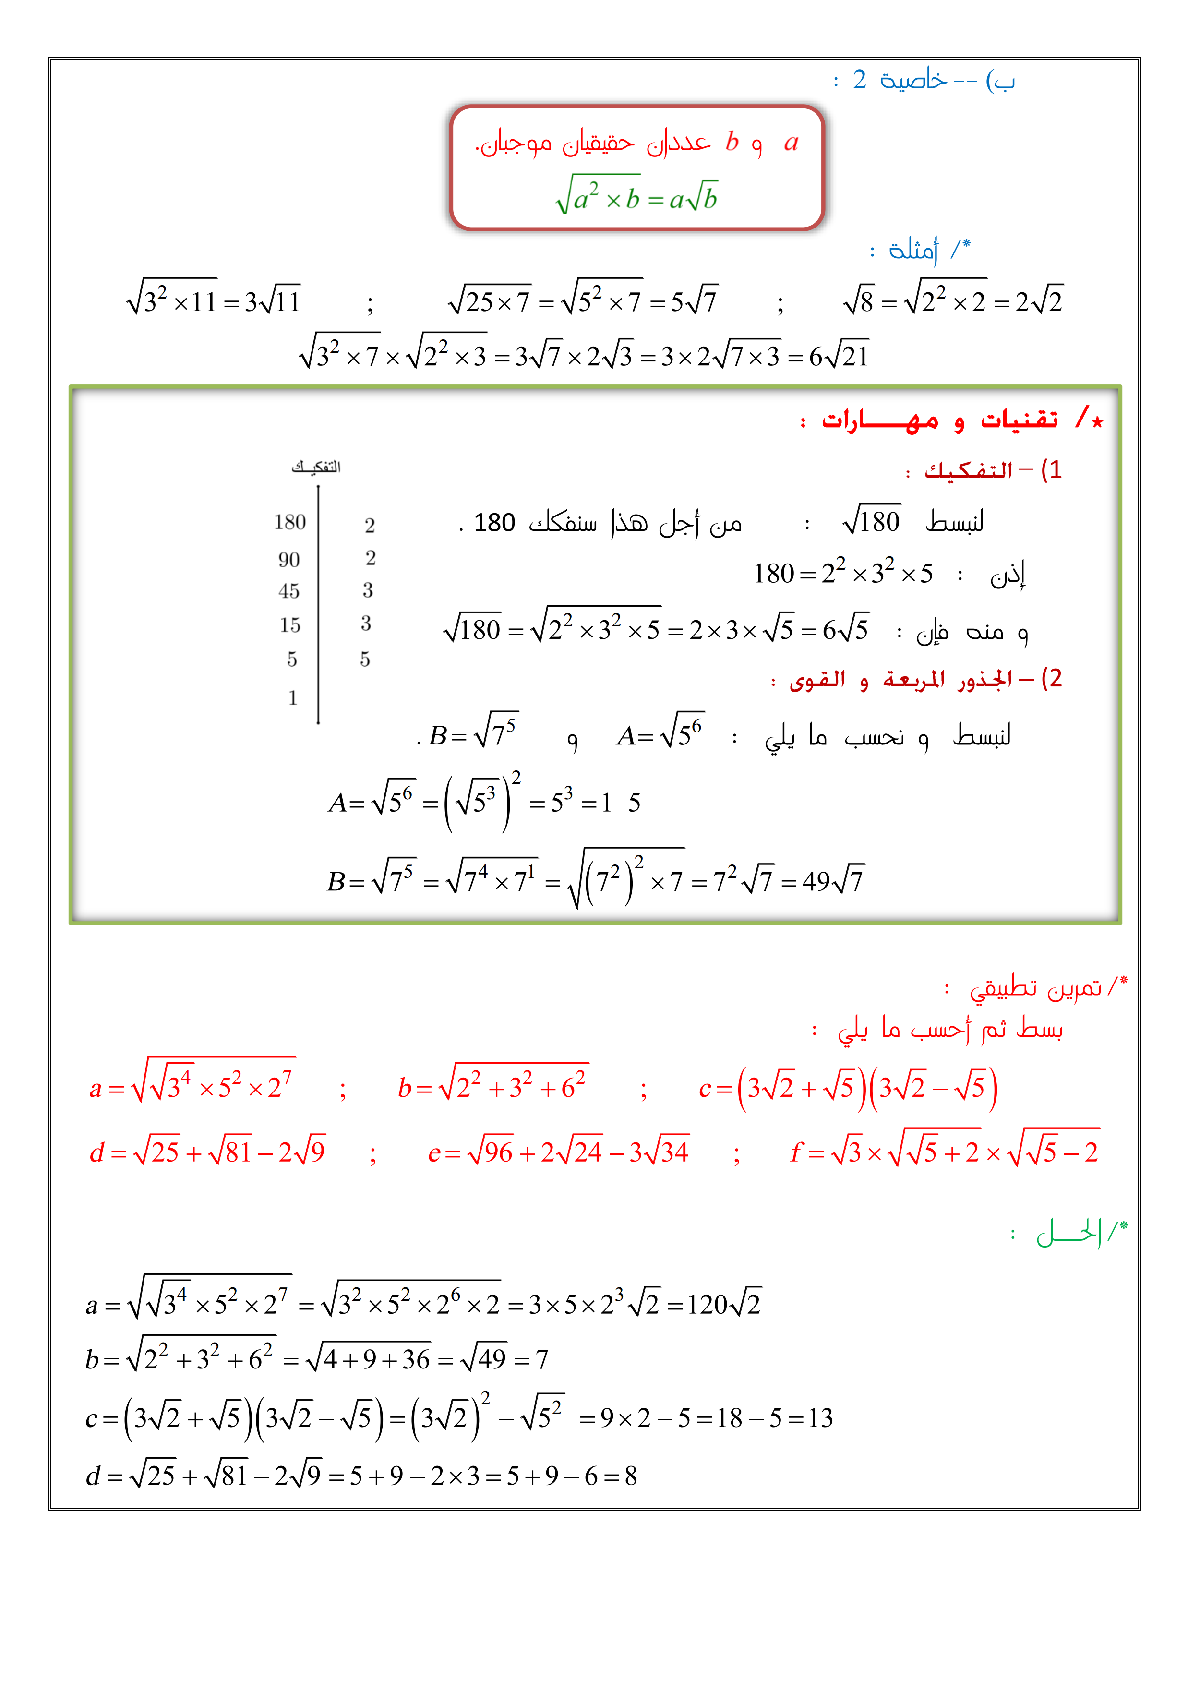 ب) -- خاصية 2 :
a و b عددان حقيقيان موجبان.
√(a² × b) = a√b
*/ أمثلة :
√(3² × 11) = 3√11 ; √(25 × 7) = √(5² × 7) = 5√7 ; √8 = √(2² × 2) = 2√2
√(3² × 7) × √(2² × 3) = 3√7 × 2√3 = 3 × 2√(7 × 3) = 6√21
*/ تقنيات و مهـــارات :
1) – التفكيك :
التفكيـك
180 | 2
90 | 2
45 | 3
15 | 3
5 | 5
1 |
لنبسط √180 : من أجل هذا سنفكك 180 .
إذن : 180 = 2² × 3² × 5
و منه فإن : √180 = √(2² × 3² × 5) = 2 × 3 × √5 = 6√5
2) – الجذور المربعة و القوى :
لنبسط و نحسب ما يلي : A = √(5⁶) و B = √(7⁵) .
A = √(5⁶) = (√(5³))² = 5³ = 1 5
B = √(7⁵) = √(7⁴ × 7¹) = √((7²)² × 7) = 7²√7 = 49√7
*/ تمرين تطبيقي :
بسط ثم أحسب ما يلي :
a = √(√(3⁴) × 5² × 2⁷) ; b = √(2² + 3² + 6²) ; c = (3√2 + √5)(3√2 − √5)
d = √25 + √81 − 2√9 ; e = √96 + 2√24 − 3√34 ; f = √3 × √(√5 + 2) × √(√5 − 2)
*/ الحـــل :
a = √(√(3⁴) × 5² × 2⁷) = √(3² × 5² × 2⁶ × 2) = 3 × 5 × 2³√2 = 120√2
b = √(2² + 3² + 6²) = √(4 + 9 + 36) = √49 = 7
c = (3√2 + √5)(3√2 − √5) = (3√2)² − √(5²) = 9 × 2 − 5 = 18 − 5 = 13
d = √25 + √81 − 2√9 = 5 + 9 − 2 × 3 = 5 + 9 − 6 = 8